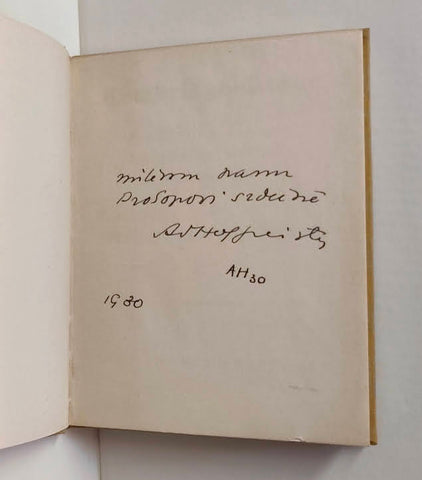 milému panu
Prokopovi srdečně
AdHoffmeister
AH 30
1930